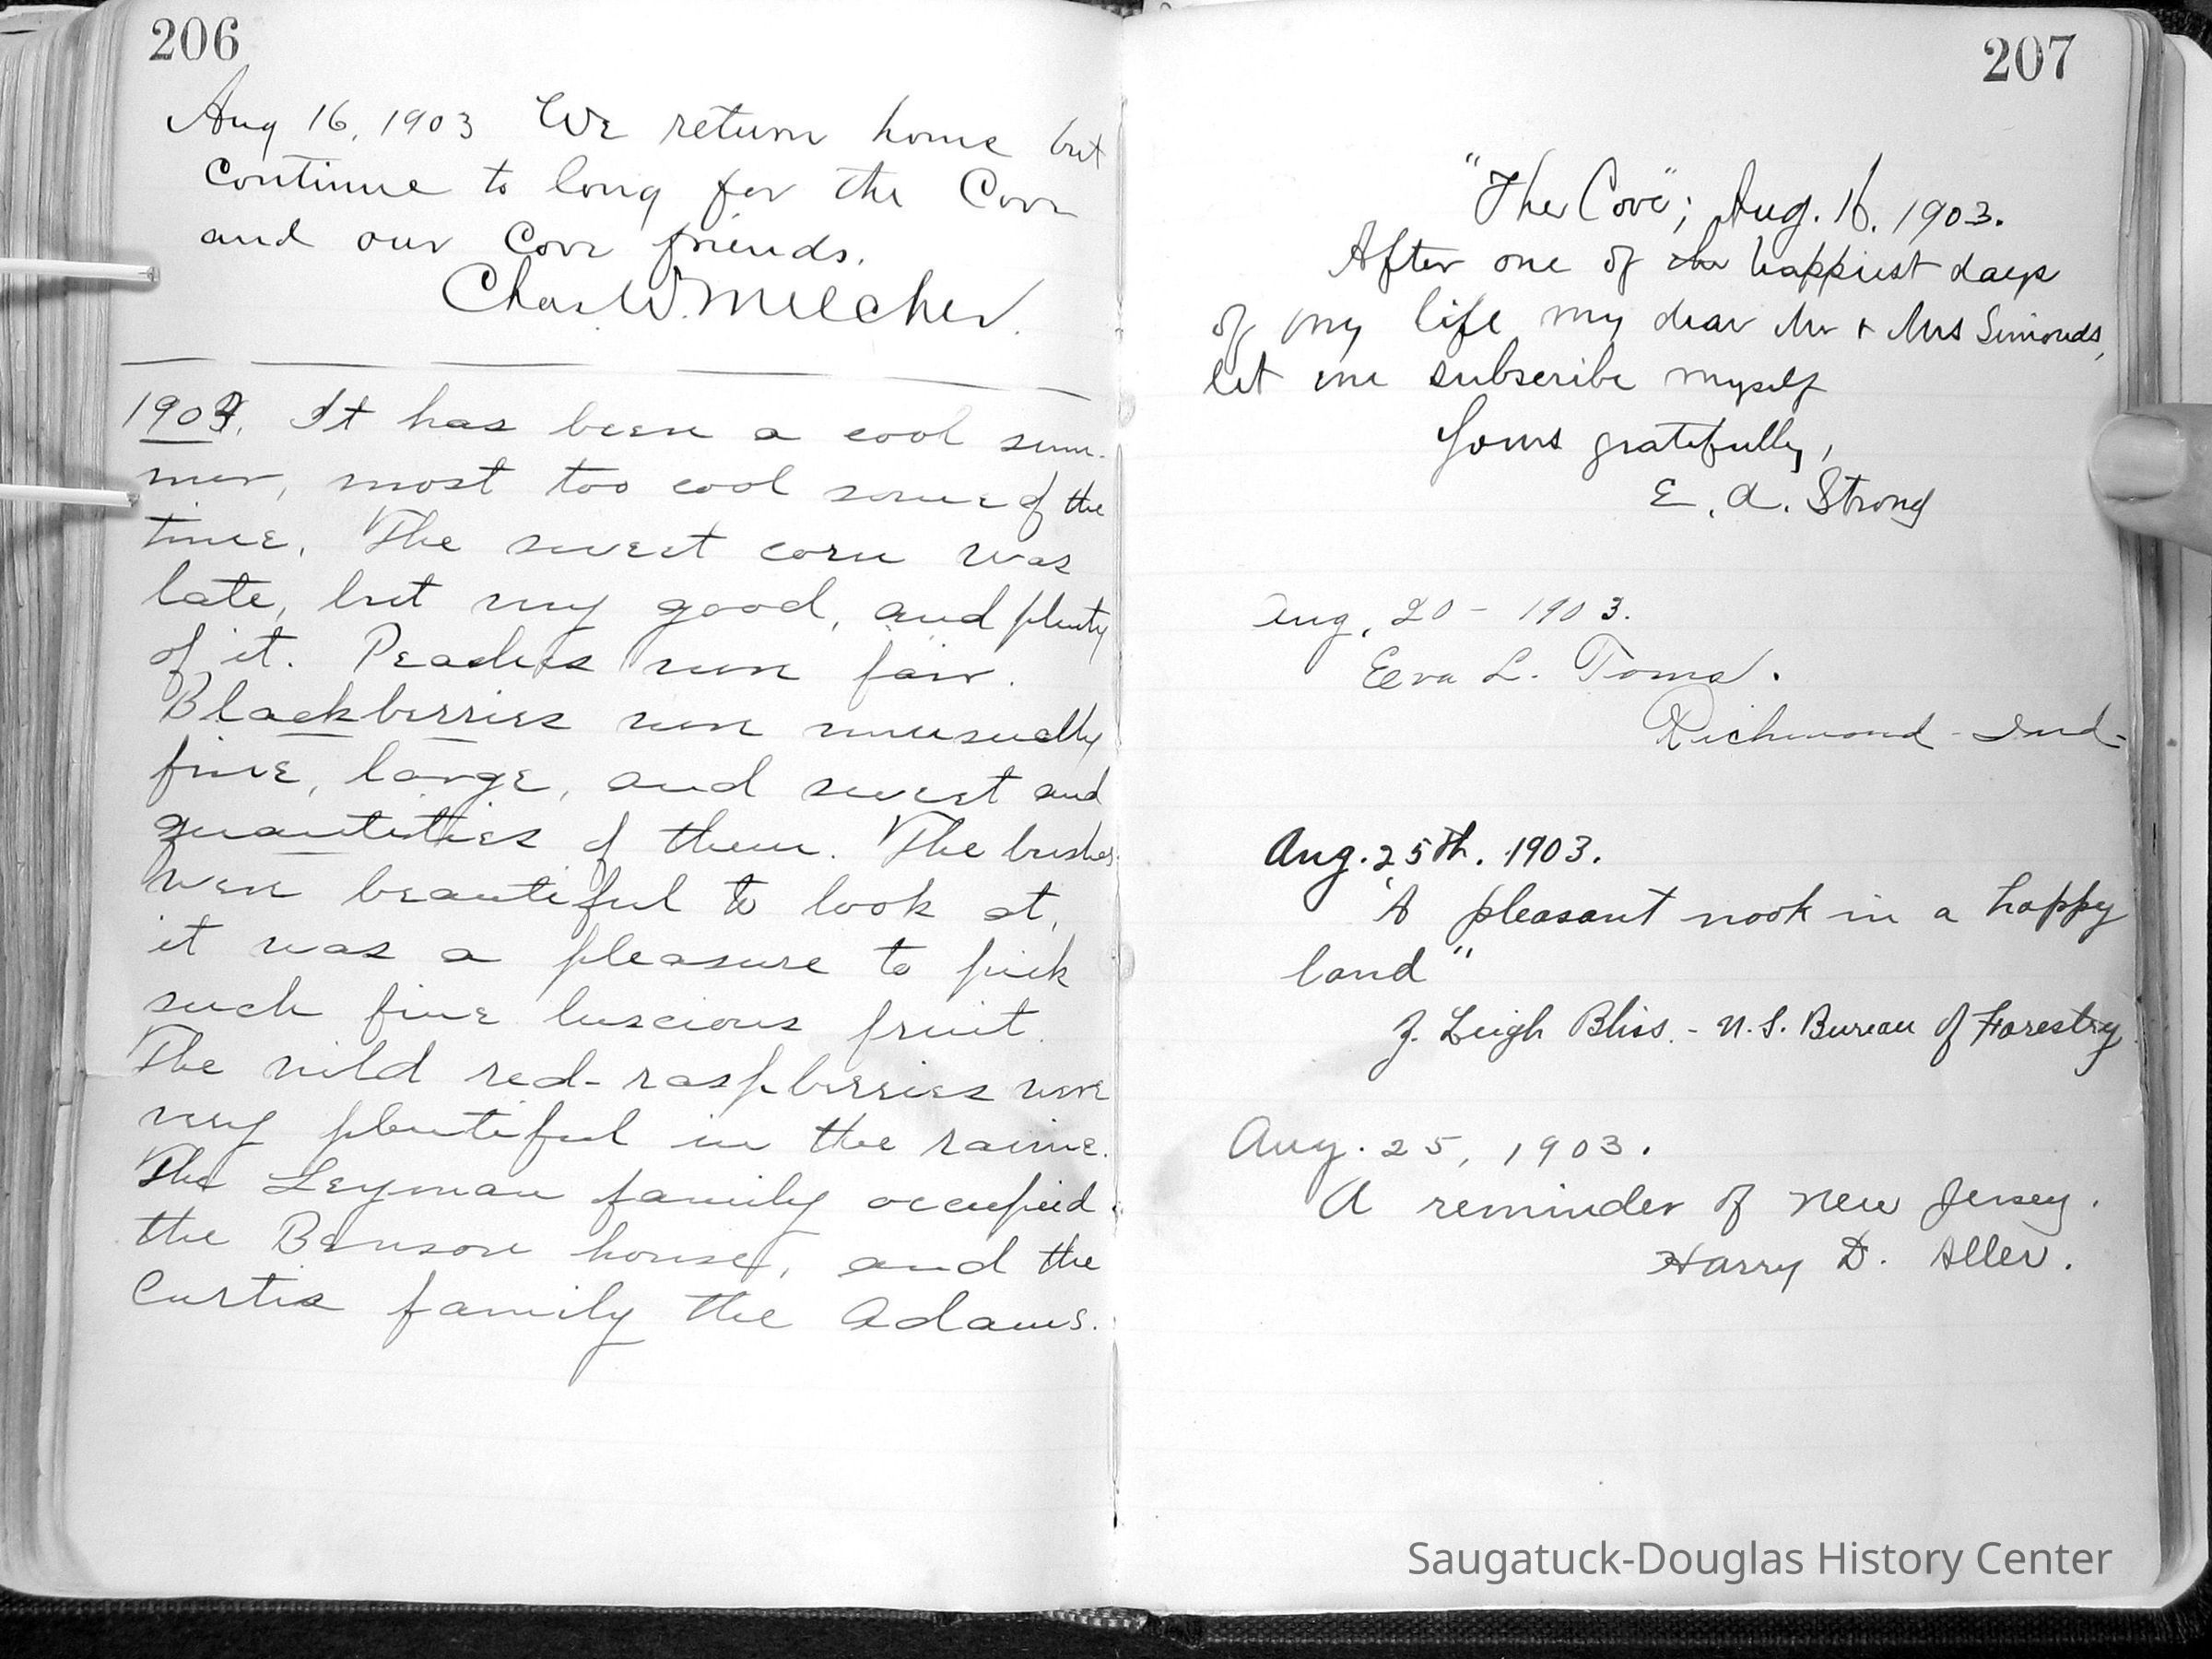 206
Aug 16, 1903 We return home but
continue to long for the Cove
and our Cove friends.
Chas. W. Melcher.
1903. It has been a cool sum-
mer, most too cool some of the
time. The sweet corn was
late, but very good, and plenty
of it. Peaches were fair.
Blackberries were unusually
fine, large, and sweet and
quantities of them. The bushes
were beautiful to look at,
it was a pleasure to pick
such fine luscious fruit.
The wild red-raspberries were
very plentiful in the ravine.
The Leyman family occupied
the Benson house, and the
Curtis family the Adams.
207
"The Cove"; Aug. 16, 1903.
After one of the happiest days
of my life my dear Mr + Mrs Simonds,
let me subscribe myself
Yours gratefully,
E. A. Strong
Aug. 20 - 1903.
Eva L. Toms.
Richmond - Ind-
Aug. 25th. 1903.
"A pleasant nook in a happy
land"
J. Leigh Bliss. - U.S. Bureau of Forestry.
Aug. 25, 1903.
A reminder of New Jersey.
Harry D. Aller.
Saugatuck-Douglas History Center